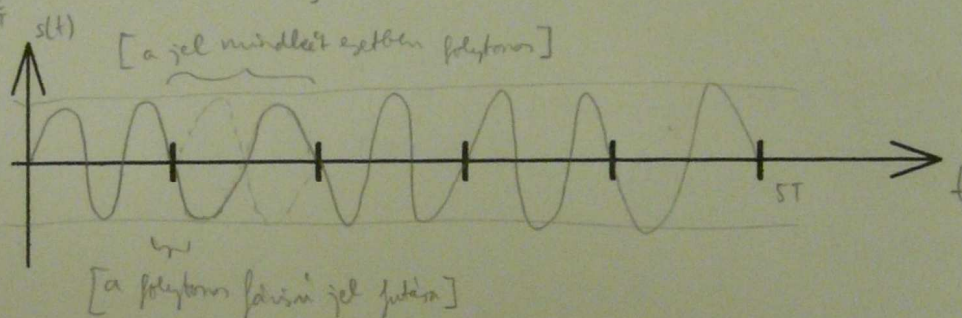 s(t)
[a jel mindkét esetben folytonos]
5T
t
[a folytonos fázisú jel futása]